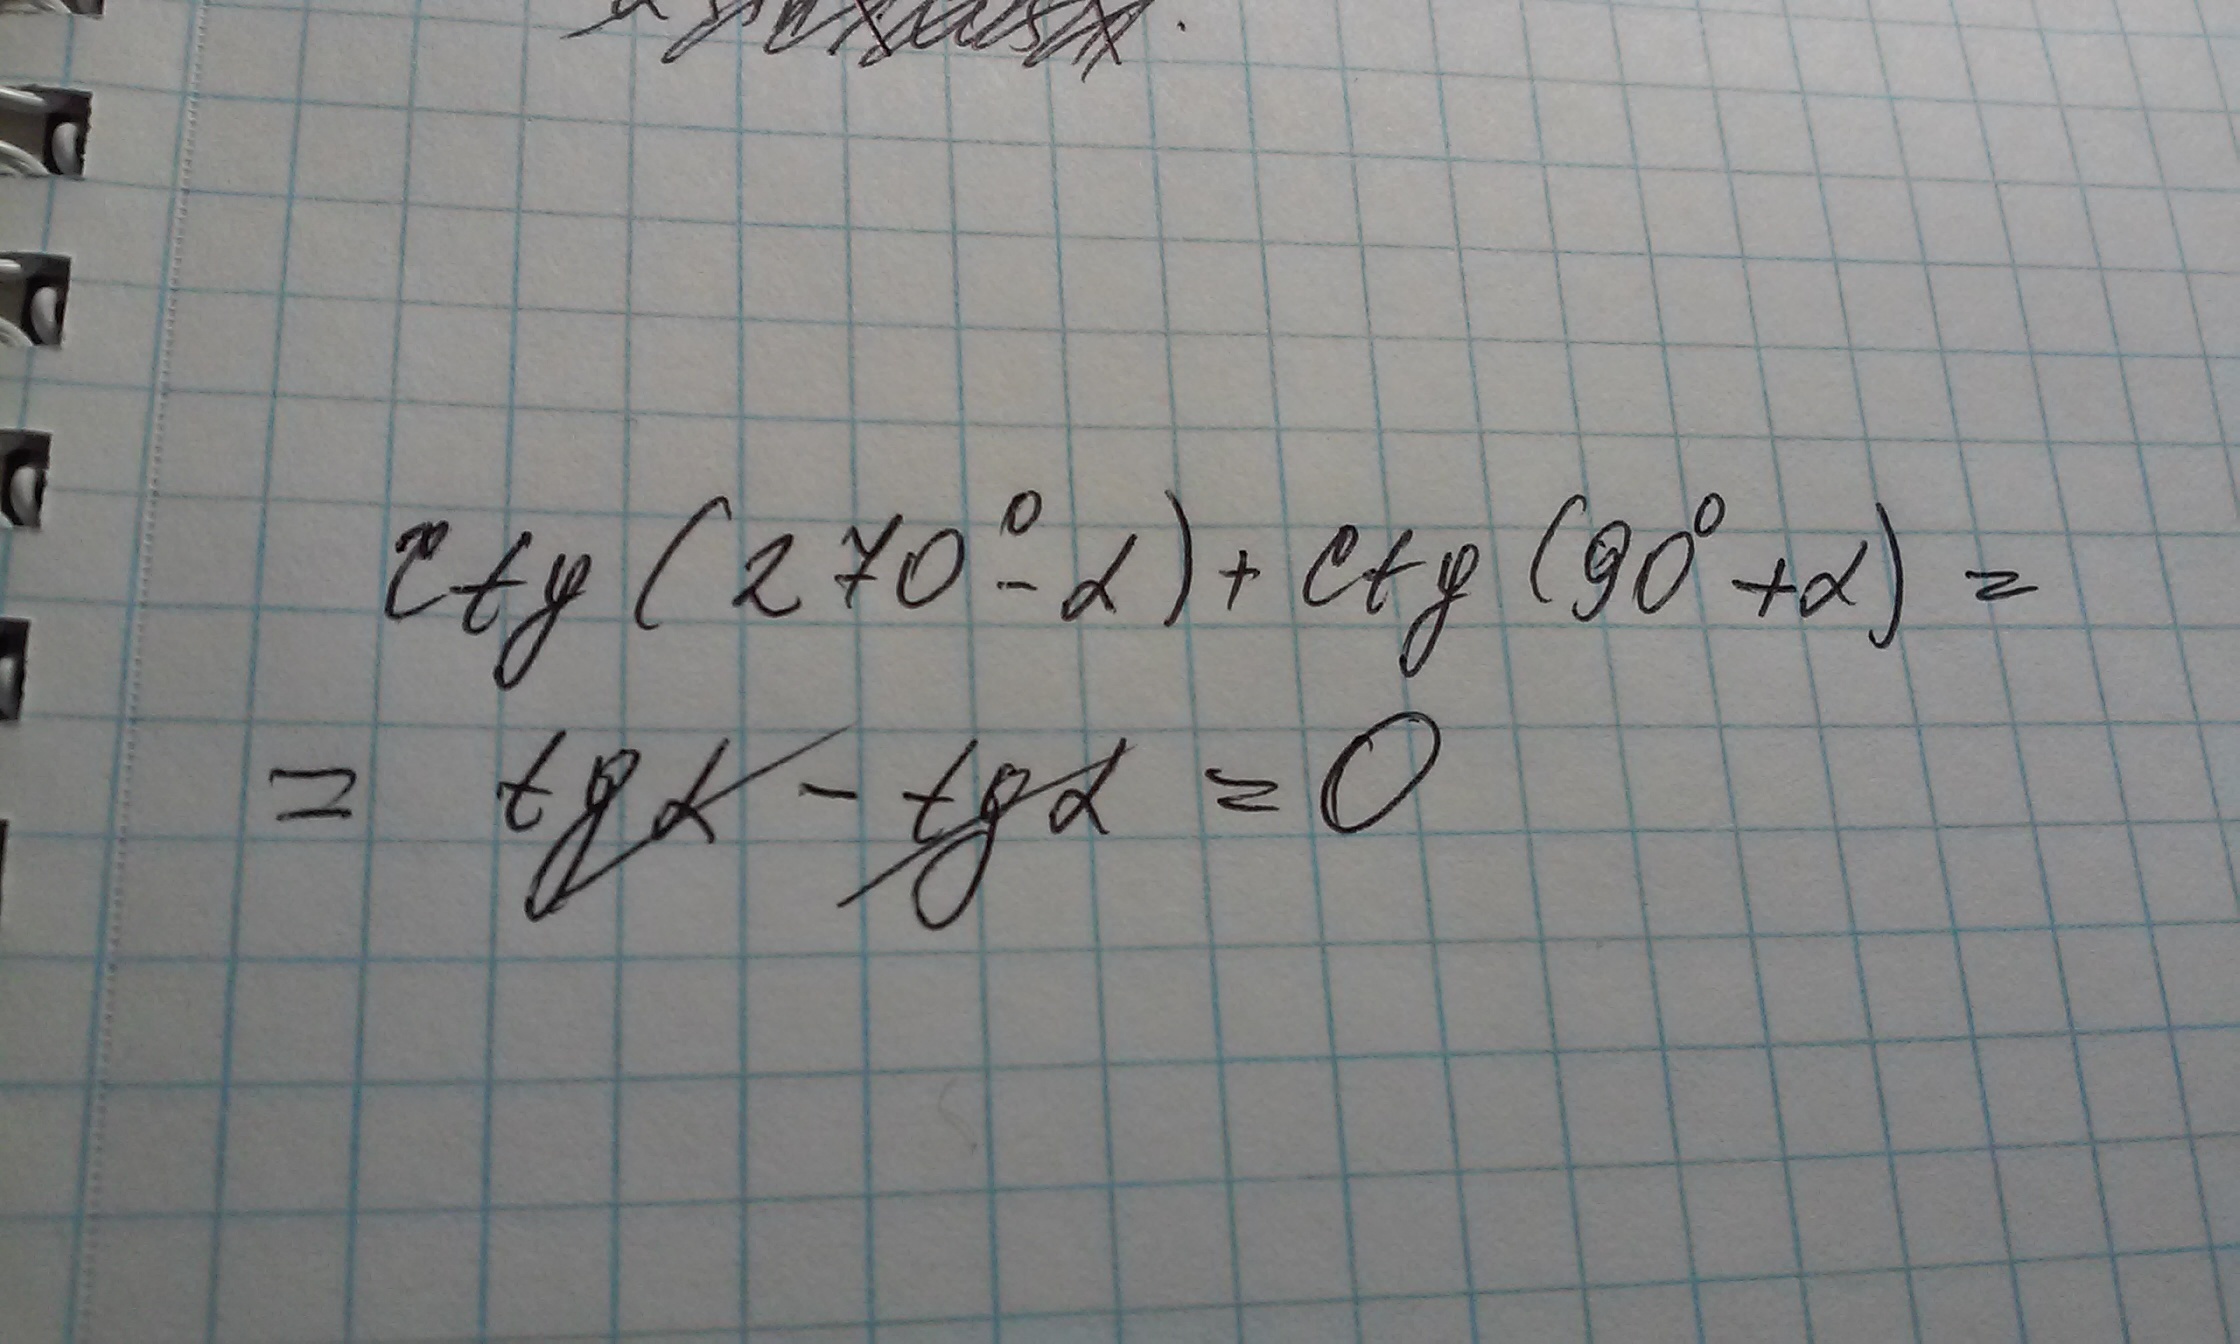 ctg(270° - α) + ctg(90° + α) =
= tgα - tgα = 0